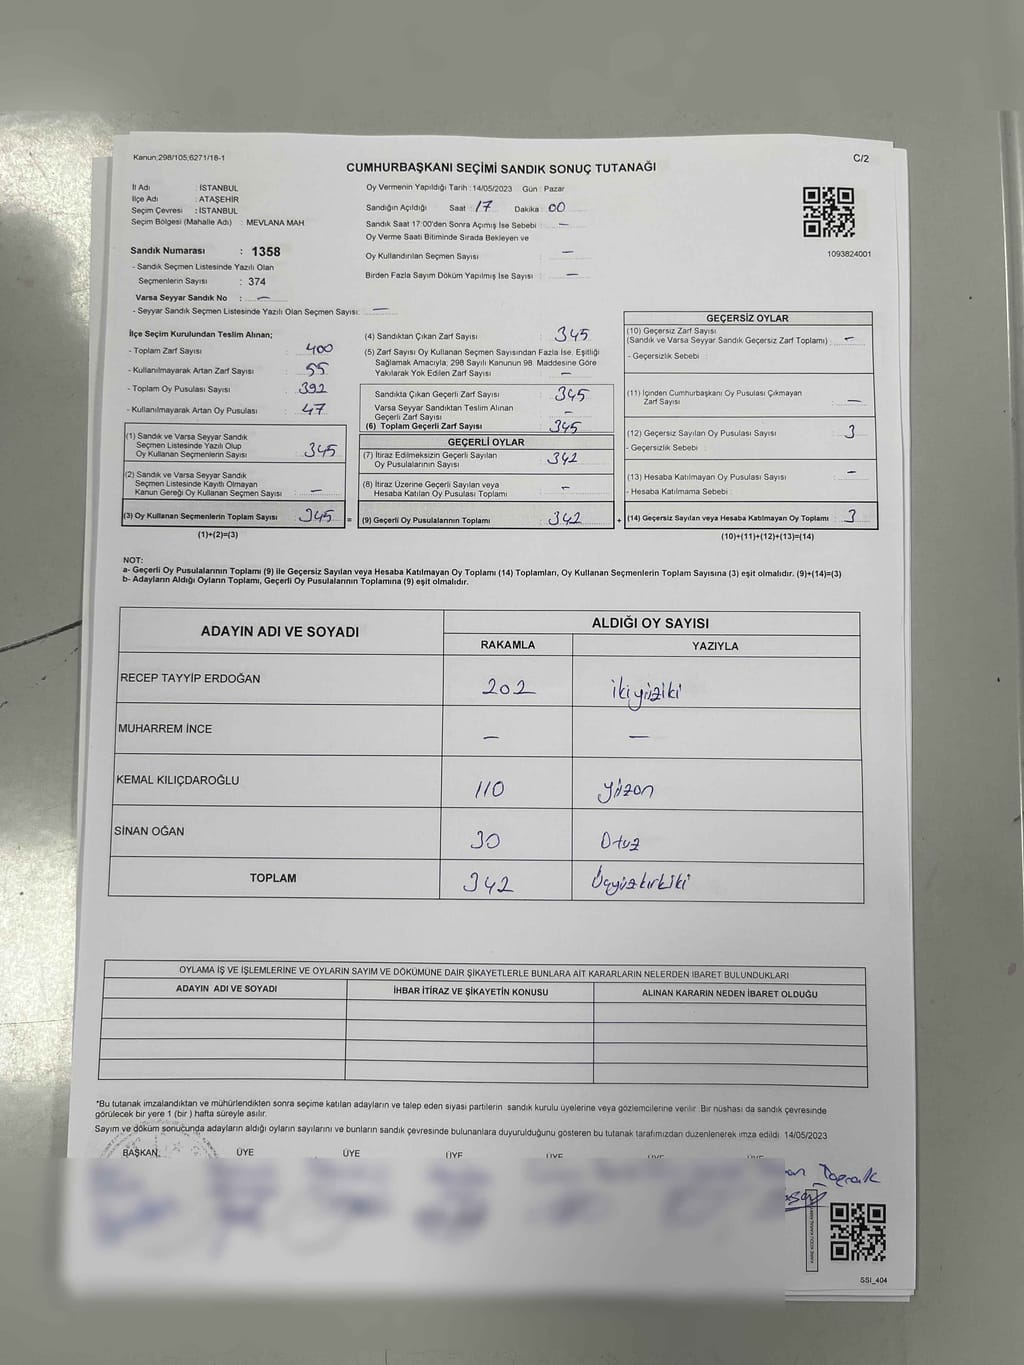 Kanun:298/105,6271/18-1
C/2
CUMHURBAŞKANI SEÇİMİ SANDIK SONUÇ TUTANAĞI
İl Adı : İSTANBUL
İlçe Adı : ATAŞEHİR
Seçim Çevresi : İSTANBUL
Seçim Bölgesi (Mahalle Adı) : MEVLANA MAH
Sandık Numarası : 1358
- Sandık Seçmen Listesinde Yazılı Olan
Seçmenlerin Sayısı : 374
Varsa Seyyar Sandık No : —
- Seyyar Sandık Seçmen Listesinde Yazılı Olan Seçmen Sayısı: —
Oy Vermenin Yapıldığı Tarih : 14/05/2023 Gün : Pazar
Sandığın Açıldığı Saat : 17 Dakika : 00
Sandık Saat 17:00'den Sonra Açımış İse Sebebi : —
Oy Verme Saati Bitiminde Sırada Bekleyen ve
Oy Kullandırılan Seçmen Sayısı : —
Birden Fazla Sayım Döküm Yapılmış İse Sayısı : —
1093824001
İlçe Seçim Kurulundan Teslim Alınan;
- Toplam Zarf Sayısı : 400
- Kullanılmayarak Artan Zarf Sayısı : 55
- Toplam Oy Pusulası Sayısı : 392
- Kullanılmayarak Artan Oy Pusulası : 47
(1) Sandık ve Varsa Seyyar Sandık
Seçmen Listesinde Yazılı Olup
Oy Kullanan Seçmenlerin Sayısı : 345
(2) Sandık ve Varsa Seyyar Sandık
Seçmen Listesinde Kayıtlı Olmayan
Kanun Gereği Oy Kullanan Seçmen Sayısı : —
(3) Oy Kullanan Seçmenlerin Toplam Sayısı : 345 =
(1)+(2)=(3)
(4) Sandıktan Çıkan Zarf Sayısı : 345
(5) Zarf Sayısı Oy Kullanan Seçmen Sayısından Fazla İse, Eşitliği
Sağlamak Amacıyla, 298 Sayılı Kanunun 98. Maddesine Göre
Yakılarak Yok Edilen Zarf Sayısı : —
Sandıkta Çıkan Geçerli Zarf Sayısı : 345
Varsa Seyyar Sandıktan Teslim Alınan
Geçerli Zarf Sayısı : —
(6) Toplam Geçerli Zarf Sayısı : 345
GEÇERLİ OYLAR
(7) İtiraz Edilmeksizin Geçerli Sayılan
Oy Pusulalarının Sayısı : 342
(8) İtiraz Üzerine Geçerli Sayılan veya
Hesaba Katılan Oy Pusulası Toplamı : —
(9) Geçerli Oy Pusulalarının Toplamı : 342 +
GEÇERSİZ OYLAR
(10) Geçersiz Zarf Sayısı
(Sandık ve Varsa Seyyar Sandık Geçersiz Zarf Toplamı) : —
- Geçersizlik Sebebi :
(11) İçinden Cumhurbaşkanı Oy Pusulası Çıkmayan
Zarf Sayısı : —
(12) Geçersiz Sayılan Oy Pusulası Sayısı : 3
- Geçersizlik Sebebi :
(13) Hesaba Katılmayan Oy Pusulası Sayısı : —
- Hesaba Katılmama Sebebi :
(14) Geçersiz Sayılan veya Hesaba Katılmayan Oy Toplamı : 3
(10)+(11)+(12)+(13)=(14)
NOT:
a- Geçerli Oy Pusulalarının Toplamı (9) ile Geçersiz Sayılan veya Hesaba Katılmayan Oy Toplamı (14) Toplamları, Oy Kullanan Seçmenlerin Toplam Sayısına (3) eşit olmalıdır. (9)+(14)=(3)
b- Adayların Aldığı Oyların Toplamı, Geçerli Oy Pusulalarının Toplamına (9) eşit olmalıdır.
ADAYIN ADI VE SOYADI
ALDIĞI OY SAYISI
RAKAMLA YAZIYLA
RECEP TAYYİP ERDOĞAN 202 ikiyüziki
MUHARREM İNCE — —
KEMAL KILIÇDAROĞLU 110 yüzon
SİNAN OĞAN 30 Otuz
TOPLAM 342 Üçyüzkırkiki
OYLAMA İŞ VE İŞLEMLERİNE VE OYLARIN SAYIM VE DÖKÜMÜNE DAİR ŞİKAYETLERLE BUNLARA AİT KARARLARIN NELERDEN İBARET BULUNDUKLARI
ADAYIN ADI VE SOYADI İHBAR İTİRAZ VE ŞİKAYETİN KONUSU ALINAN KARARIN NEDEN İBARET OLDUĞU
*Bu tutanak imzalandıktan ve mühürlendikten sonra seçime katılan adayların ve talep eden siyasi partilerin sandık kurulu üyelerine veya gözlemcilerine verilir. Bir nüshası da sandık çevresinde
görülecek bir yere 1 (bir ) hafta süreyle asılır.
Sayım ve döküm sonucunda adayların aldığı oyların sayılarını ve bunların sandık çevresinde bulunanlara duyurulduğunu gösteren bu tutanak tarafımızdan düzenlenerek imza edildi. 14/05/2023
BAŞKAN ÜYE ÜYE ÜYE ÜYE ÜYE ÜYE
SSI_404